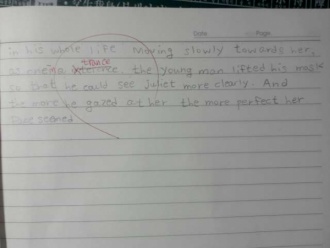 Date Page
in his whole life moving slowly towards her.
trance
the young man lifted his mask
so that he could see Juliet more clearly. And
the more he gazed at her the more perfect her
face seemed